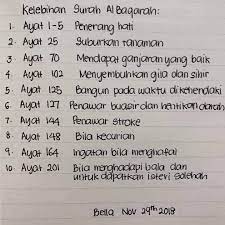 Kelebihan Surah Al Baqarah:
1. Ayat 1-5 Penerang hati
2. Ayat 25 Suburkan tanaman
3. Ayat 70 Mendapat ganjaran yang baik
4. Ayat 102 Menyembuhkan gila dan sihir
5. Ayat 125 Bangun pada waktu dikehendaki
6. Ayat 127 Penawar buasir dan hentikan darah
7. Ayat 144 Penawar stroke
8. Ayat 148 Bila kecurian
9. Ayat 164 Ingatan bila menghafal
10. Ayat 201 Bila menghadapi bala dan
untuk dapatkan isteri solehah
Bella Nov 29th 2018